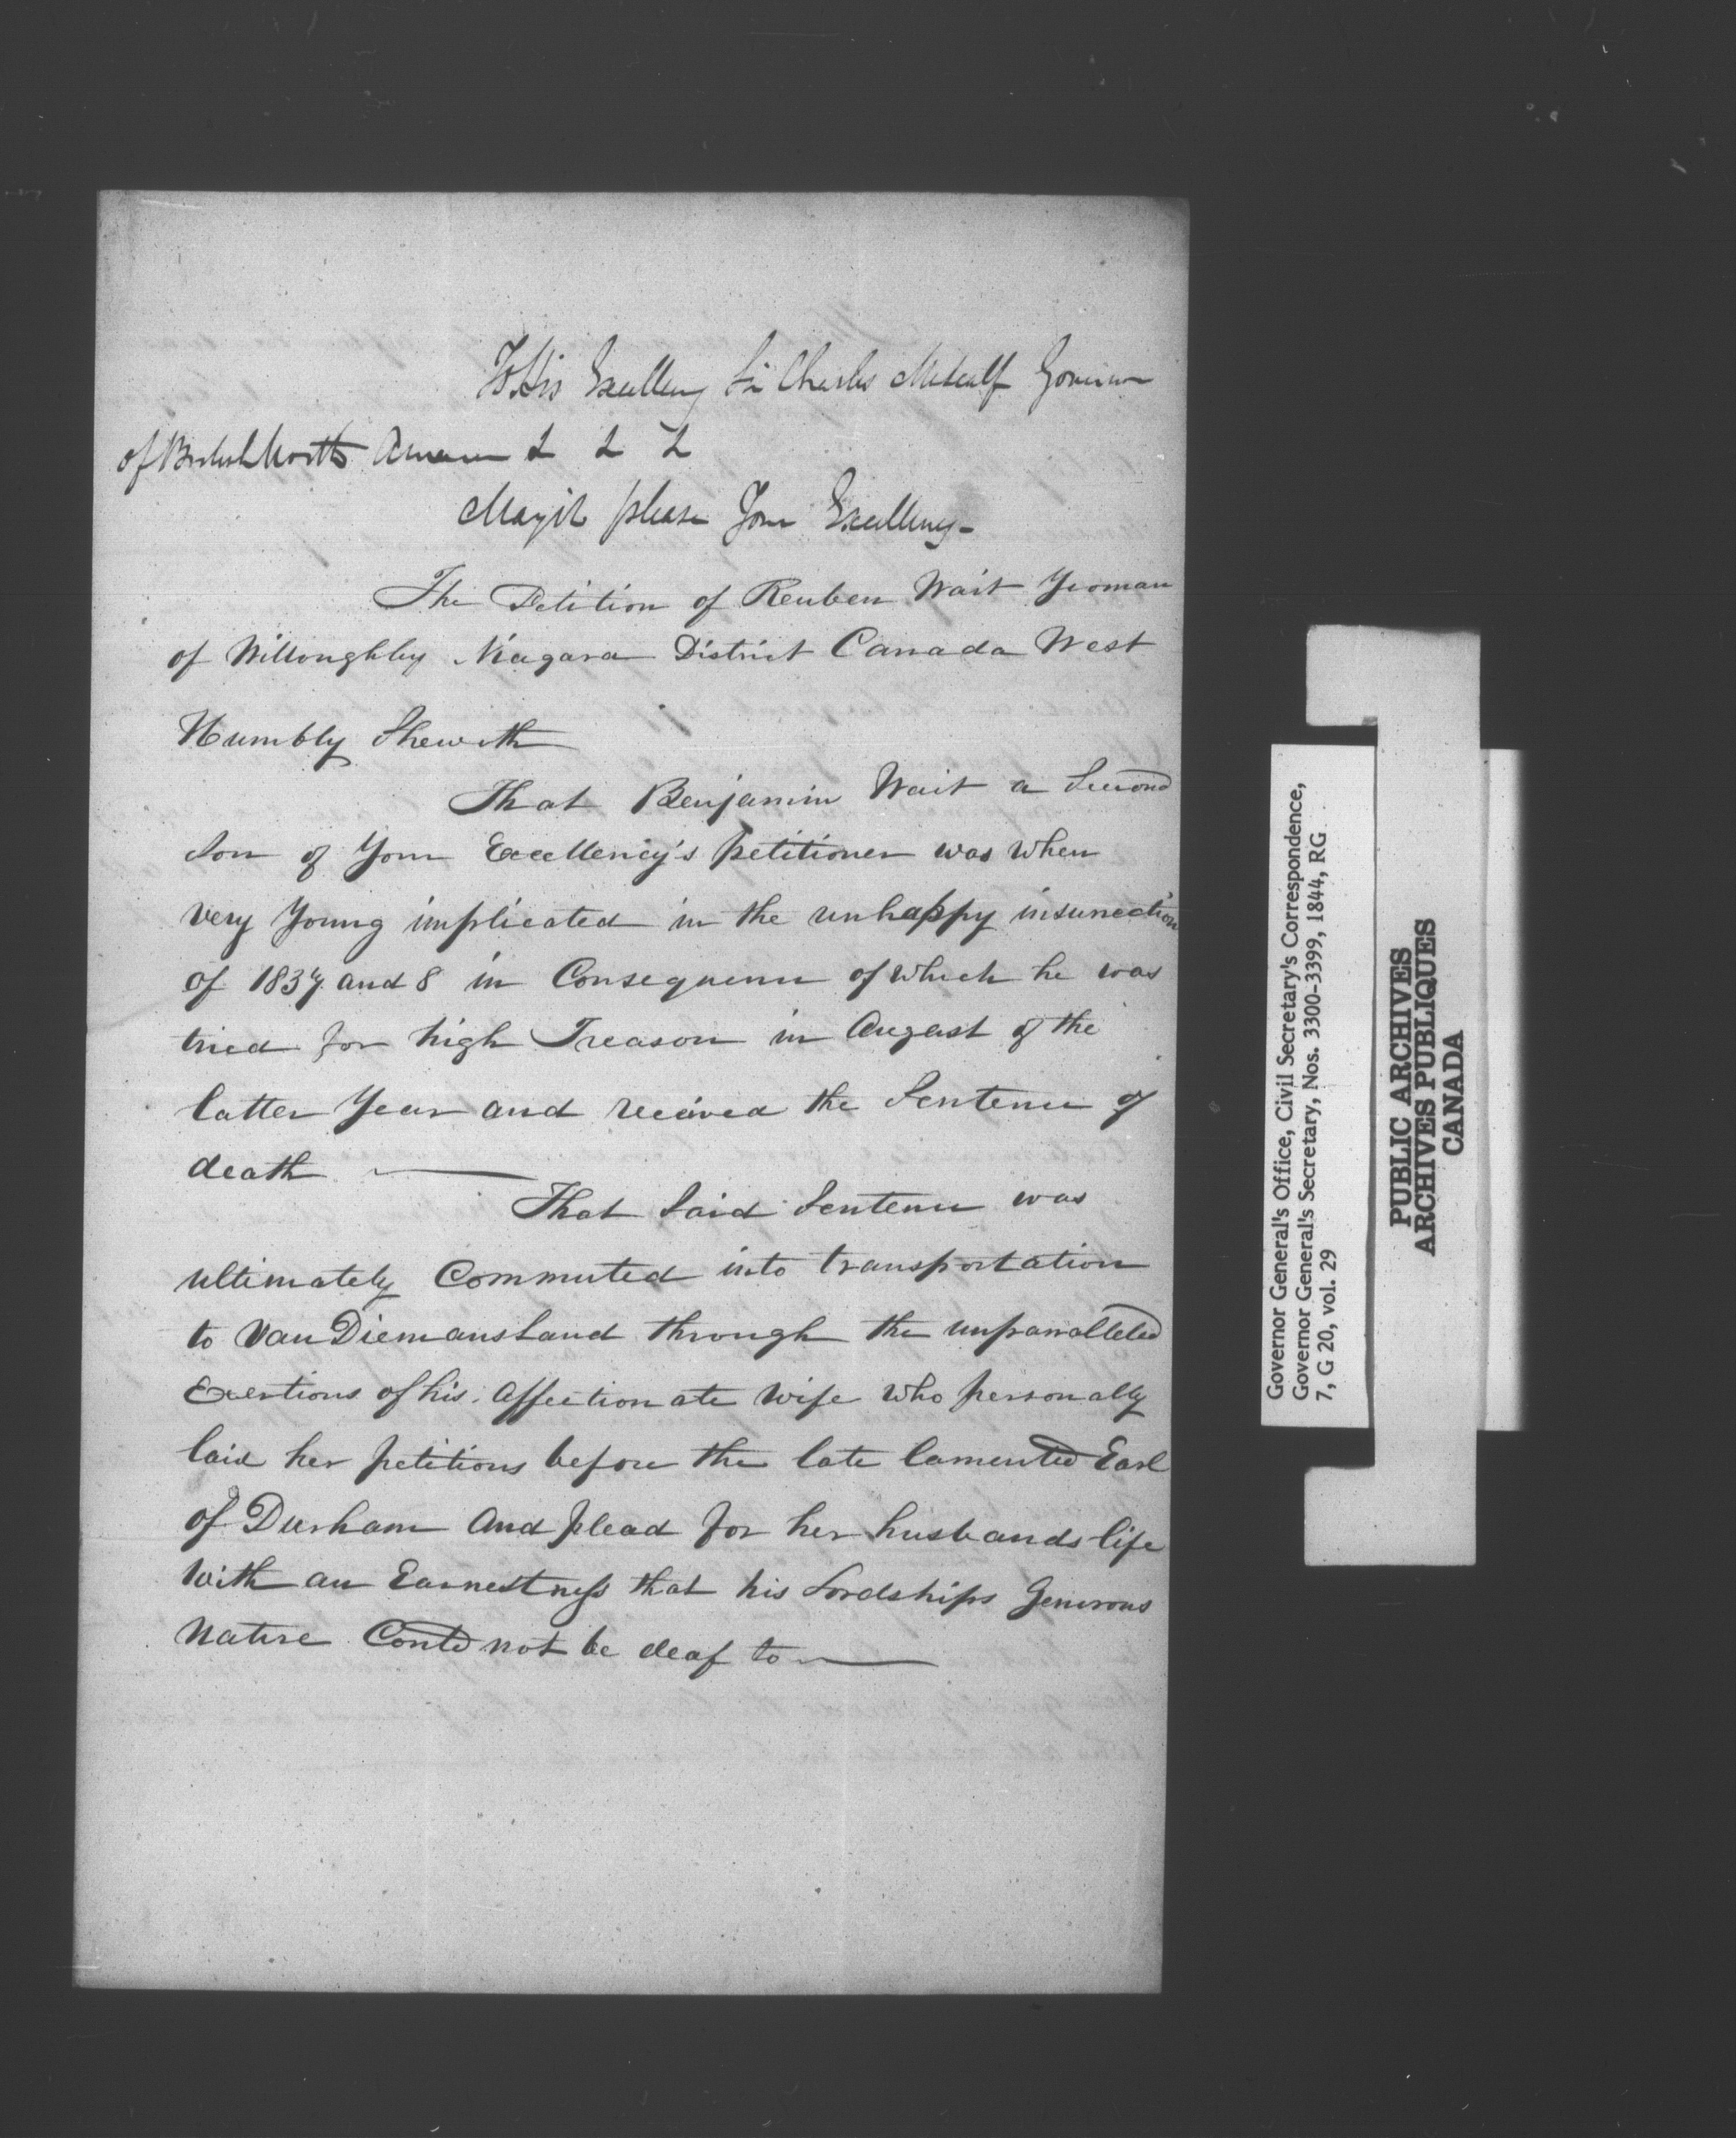 To His Excellency Sir Charles Metcalf Governor
of British North America & & &
May it please Your Excellency-
The Petition of Reuben Wait Yeoman
of Willoughby Niagara District Canada West
Humbly Sheweth
That Benjamin Wait a Second
Son of Your Excellency's petitioner was when
very Young implicated in the unhappy insurrection
of 1837 and 8 in Consequence of which he was
tried for high Treason in August of the
latter Year and received the Sentence of
death
That Said Sentence was
ultimately Commuted into transportation
to Van Diemans Land through the unparralleled
Exertions of his Affectionate Wife who personally
laid her petitions before the late lamented Earl
of Durham And plead for her husbands life
With an Earnestness that his Lordships Generous
Nature Could not be deaf to
Governor General's Office, Civil Secretary's Correspondence,
Governor General's Secretary, Nos. 3300-3399, 1844, RG
7, G 20, vol. 29
PUBLIC ARCHIVES
ARCHIVES PUBLIQUES
CANADA